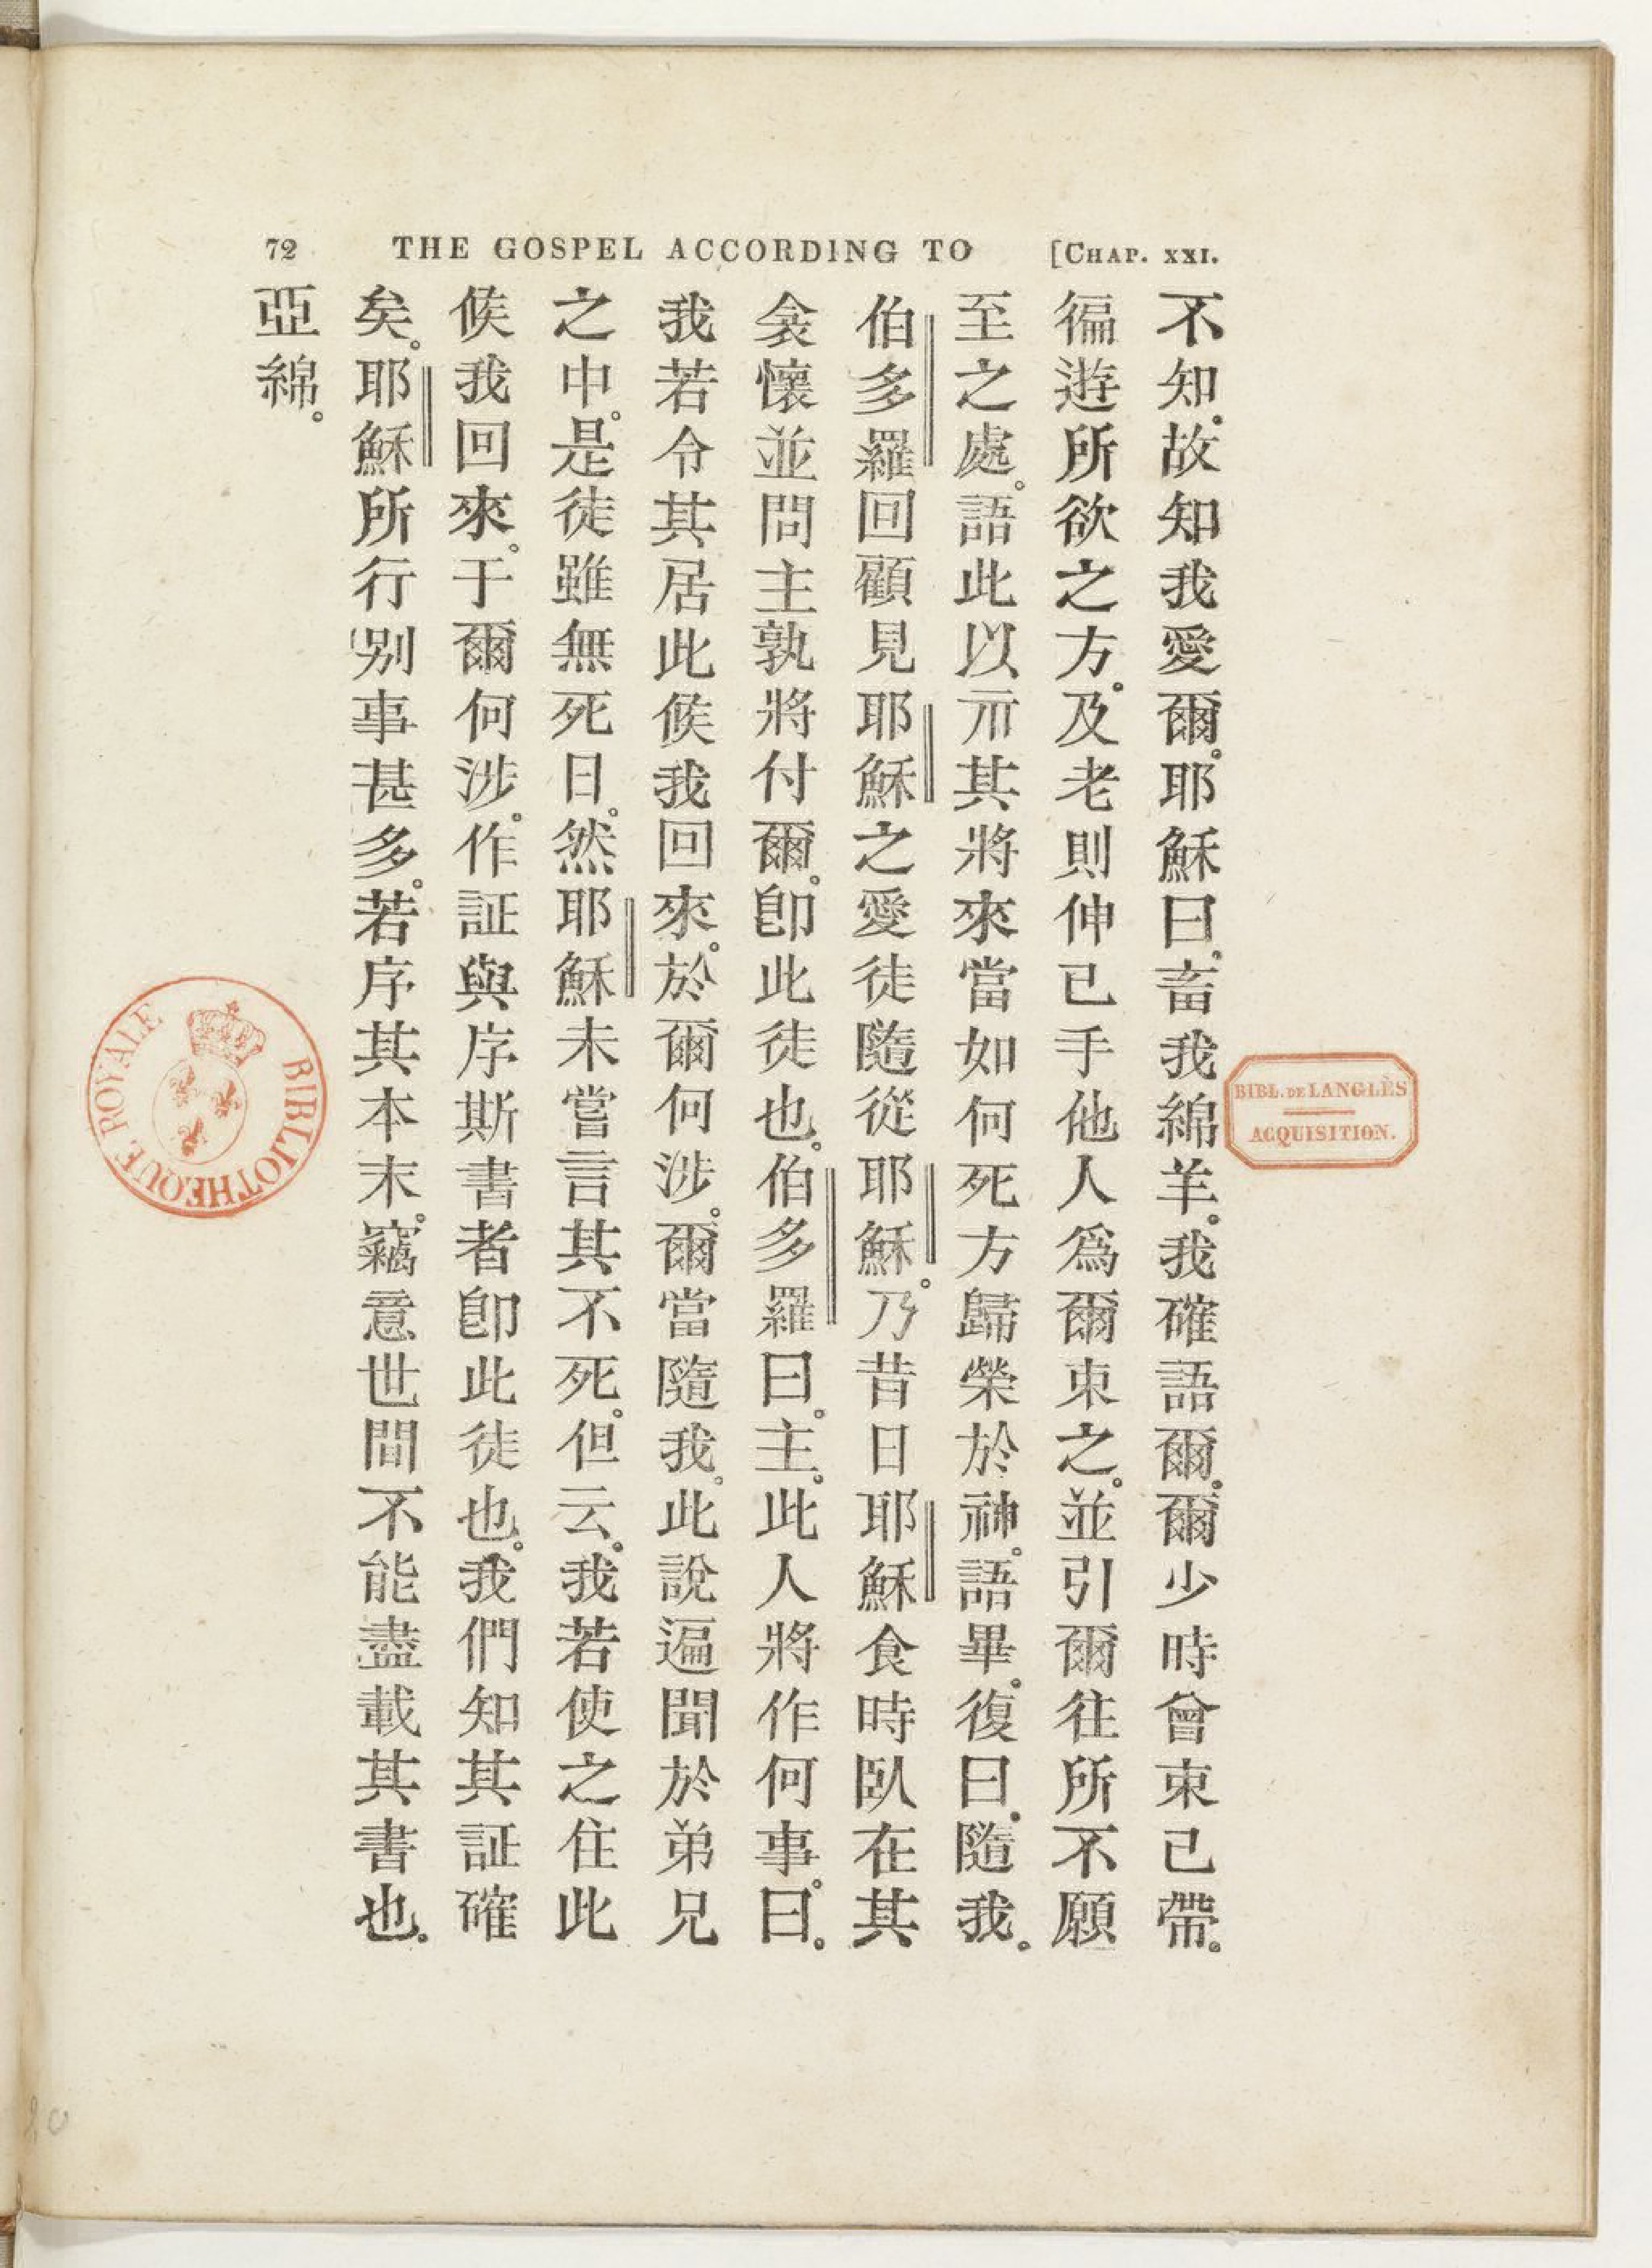 72 THE GOSPEL ACCORDING TO [CHAP. XXI.
不知。故知我愛爾。耶穌曰。畜我綿羊。我確語爾。爾少時曾束己帶。
徧遊所欲之方。及老則伸己手他人爲爾束之。並引爾往所不願
至之處。語此以示其將來當如何死方歸榮於神。語畢。復曰。隨我。
伯多羅回顧見耶穌之愛徒隨從耶穌。乃昔日耶穌食時臥在其
衾懷並問主孰將付爾。卽此徒也。伯多羅曰。主。此人將作何事。曰。
我若令其居此候我回來。於爾何涉。爾當隨我。此說遍聞於弟兄
之中。是徒雖無死日。然耶穌未嘗言其不死。但云。我若使之住此
候我回來。于爾何涉。作証與序斯書者卽此徒也。我們知其証確
矣。耶穌所行別事甚多。若序其本末。竊意世間不能盡載其書也。
亞綿。
BIBLIOTHEQUE ROYALE
BIBL. DE LANGLÈS
ACQUISITION.